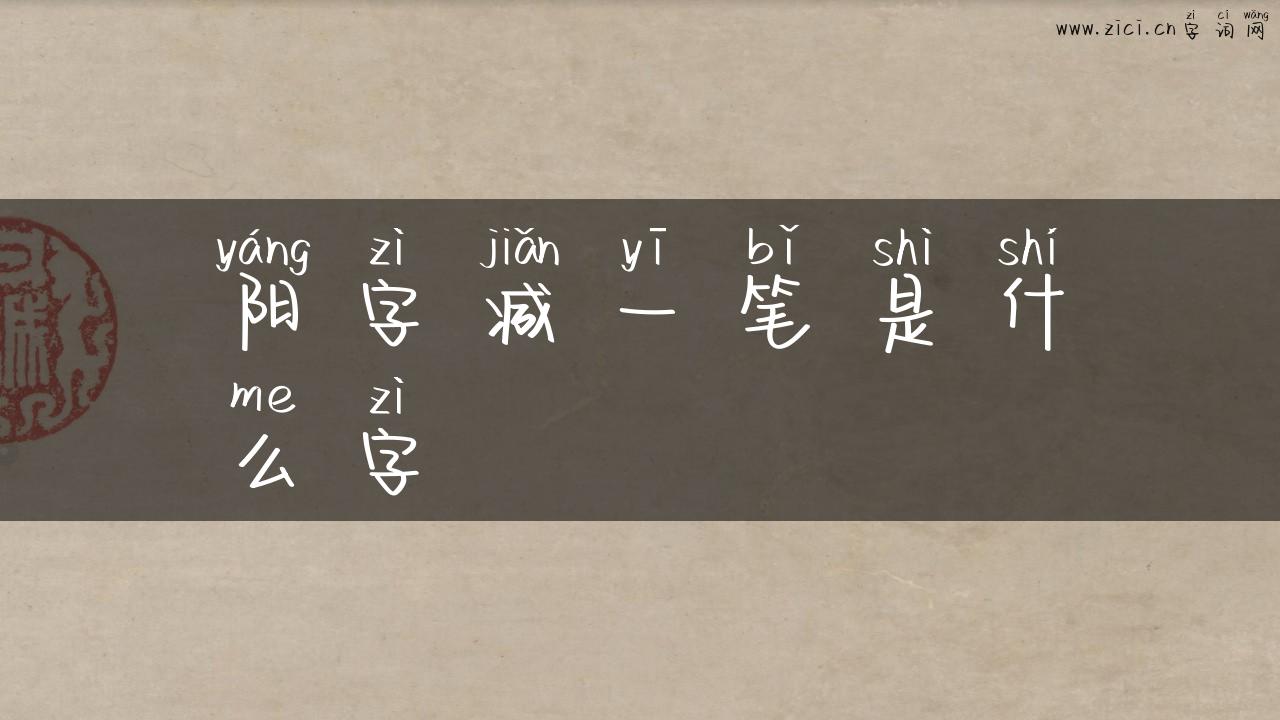 zì cí wǎng
www.zici.cn 字词网
yáng zì jiǎn yī bǐ shì shí
阳字减一笔是什
me zì
么字